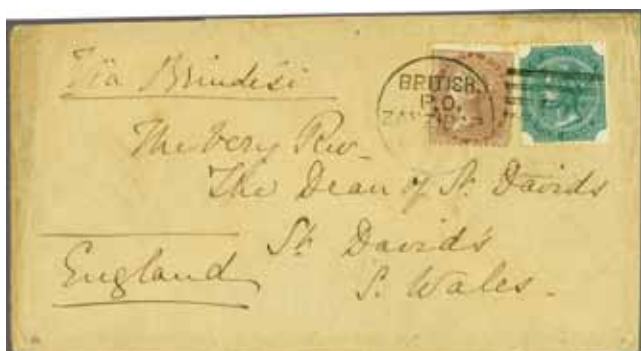 Via Brindisi
BRITISH
P.O.
The Very Rev.
The Dean of St. Davids
St. David's
S. Wales.
England